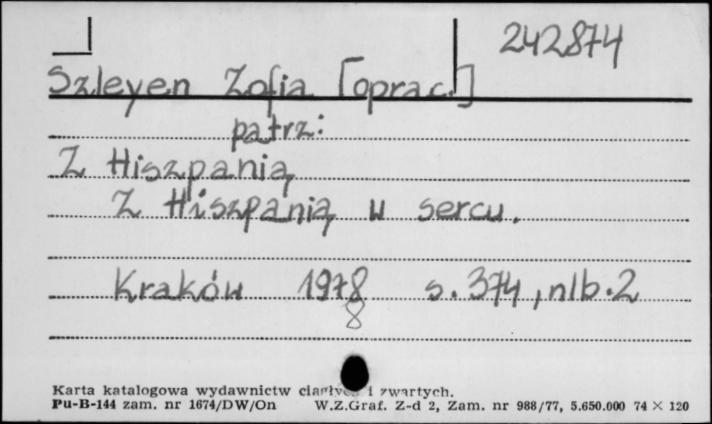 242874
Szleyen Zofia [oprac.]
patrz:
Z Hiszpanią
Z Hiszpanią w sercu.
Kraków 1978 s. 374, nlb. 2
8
Karta katalogowa wydawnictw ciągłych i zwartych.
Pu-B-144 zam. nr 1674/DW/On W.Z.Graf. Z-d 2, Zam. nr 988/77, 5.650.000 74 × 120